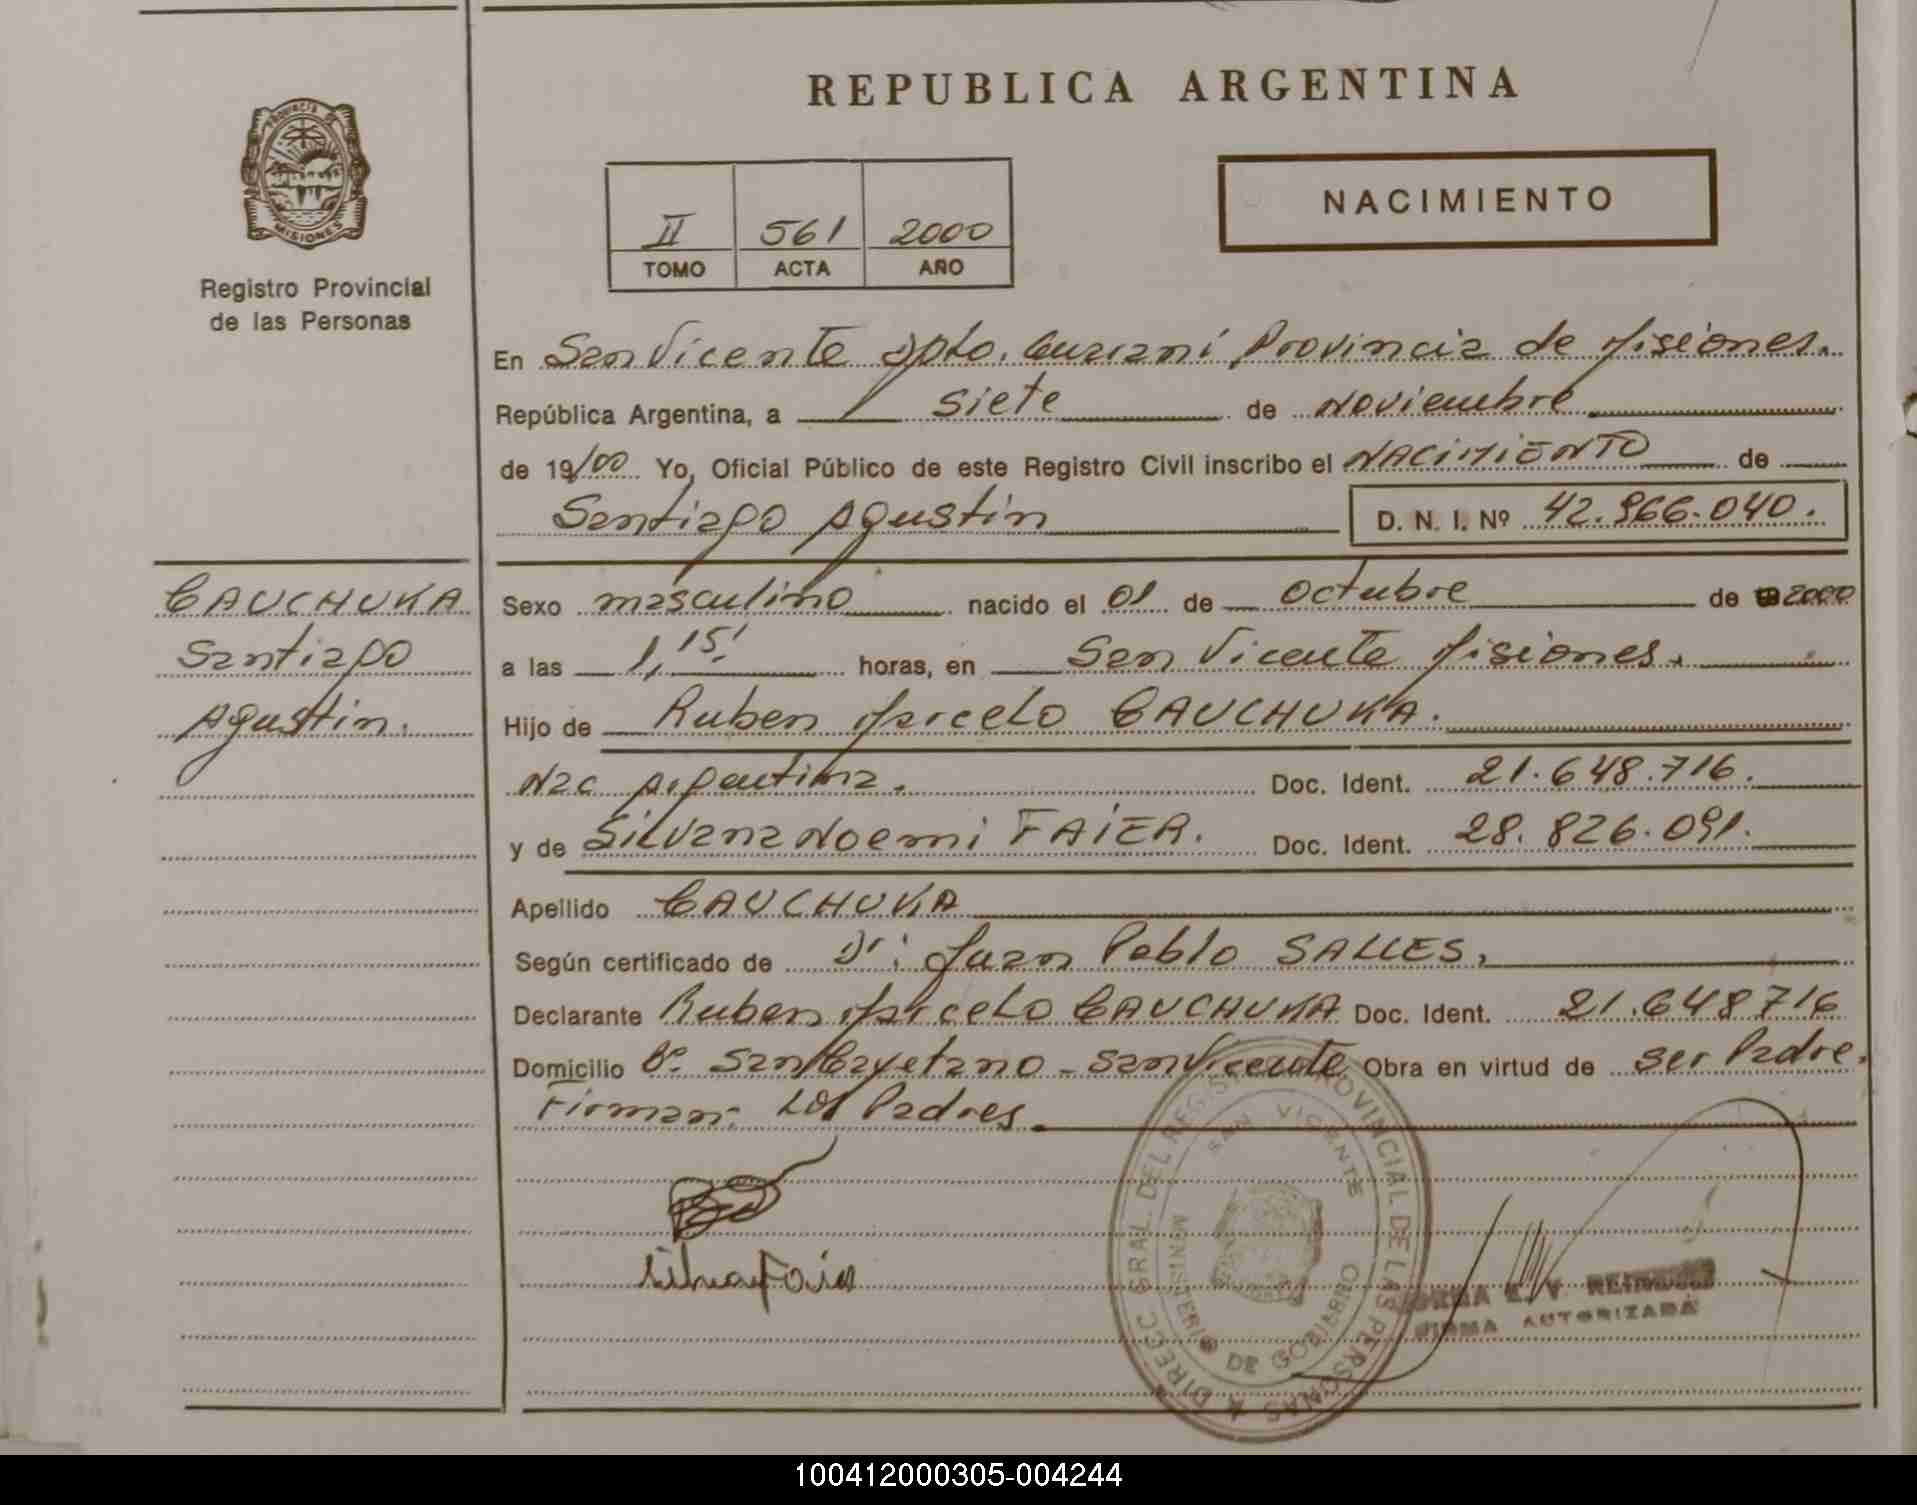 REPUBLICA ARGENTINA
PROVINCIA DE
MISIONES
Registro Provincial
de las Personas
II 561 2000
TOMO ACTA AÑO
NACIMIENTO
En San Vicente Dpto. Guaraní Provincia de Misiones.
República Argentina, a siete de Noviembre
de 19/00 Yo, Oficial Público de este Registro Civil inscribo el NACIMIENTO de
Santiago Agustin D. N. I. Nº 42.966.040.
CAUCHUKA
Santiago
Agustin.
Sexo masculino nacido el 01 de octubre de 2000
a las 1,15' horas, en San Vicente Misiones.
Hijo de Ruben Marcelo CAUCHUKA.
Nac Argentina. Doc. Ident. 21.648.716.
y de Silvana Noemi FAIER. Doc. Ident. 28.826.091.
Apellido CAUCHUKA
Según certificado de Dr: Juan Pablo SALLES,
Declarante Ruben Marcelo CAUCHUKA Doc. Ident. 21.648716
Domicilio Bº San Cayetano - San Vicente Obra en virtud de ser Padre.
Firman: Los Padres
DIRECC. GRAL. DEL REGISTRO PROVINCIAL DE LAS PERSONAS
SAN VICENTE
MINISTERIO DE GOBIERNO
FIRMA AUTORIZADA
100412000305-004244